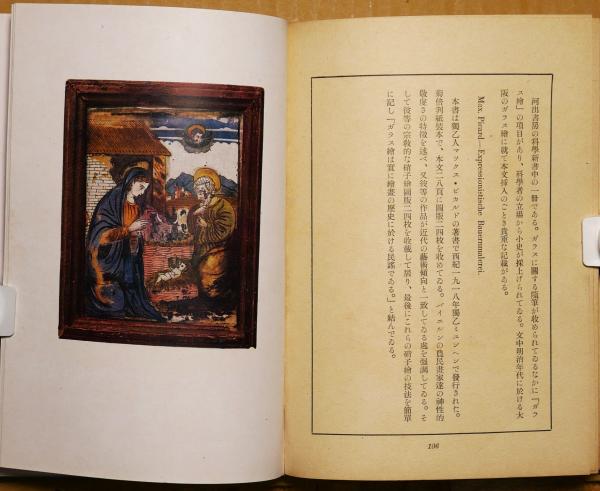 河出書房の科學新書中の一册である。ガラスに關する隨筆が收められてゐるなかに「ガラ
ス繪」の項目があり、科學者の立場から小史が採上げられてゐる。文中明治年代に於ける大
阪のガラス繪に就て本文挿入のごとき貴重な記錄がある。
Max, Picard—Expressionistische Bauernmalerei.
本書は獨乙人マックス・ピカルドの著書で西紀一九一八年獨乙ミュンヘンで發行された。
菊倍判紙裝本で、本文二八頁に圖版二四枚を收めてゐる。バイエルンの農民畫家達の神性的
敬虔さの特徵を述べ、又彼等の作品が近代の藝術傾向と一致してゐる處を强調してゐる。そ
して彼等の宗敎的な硝子繪圖版二四枚を收載して居り、最後にこれらの硝子繪の技法を簡單
に記し「ガラス繪は實に繪畫の歷史に於ける民謠である。」と結んでゐる。
106